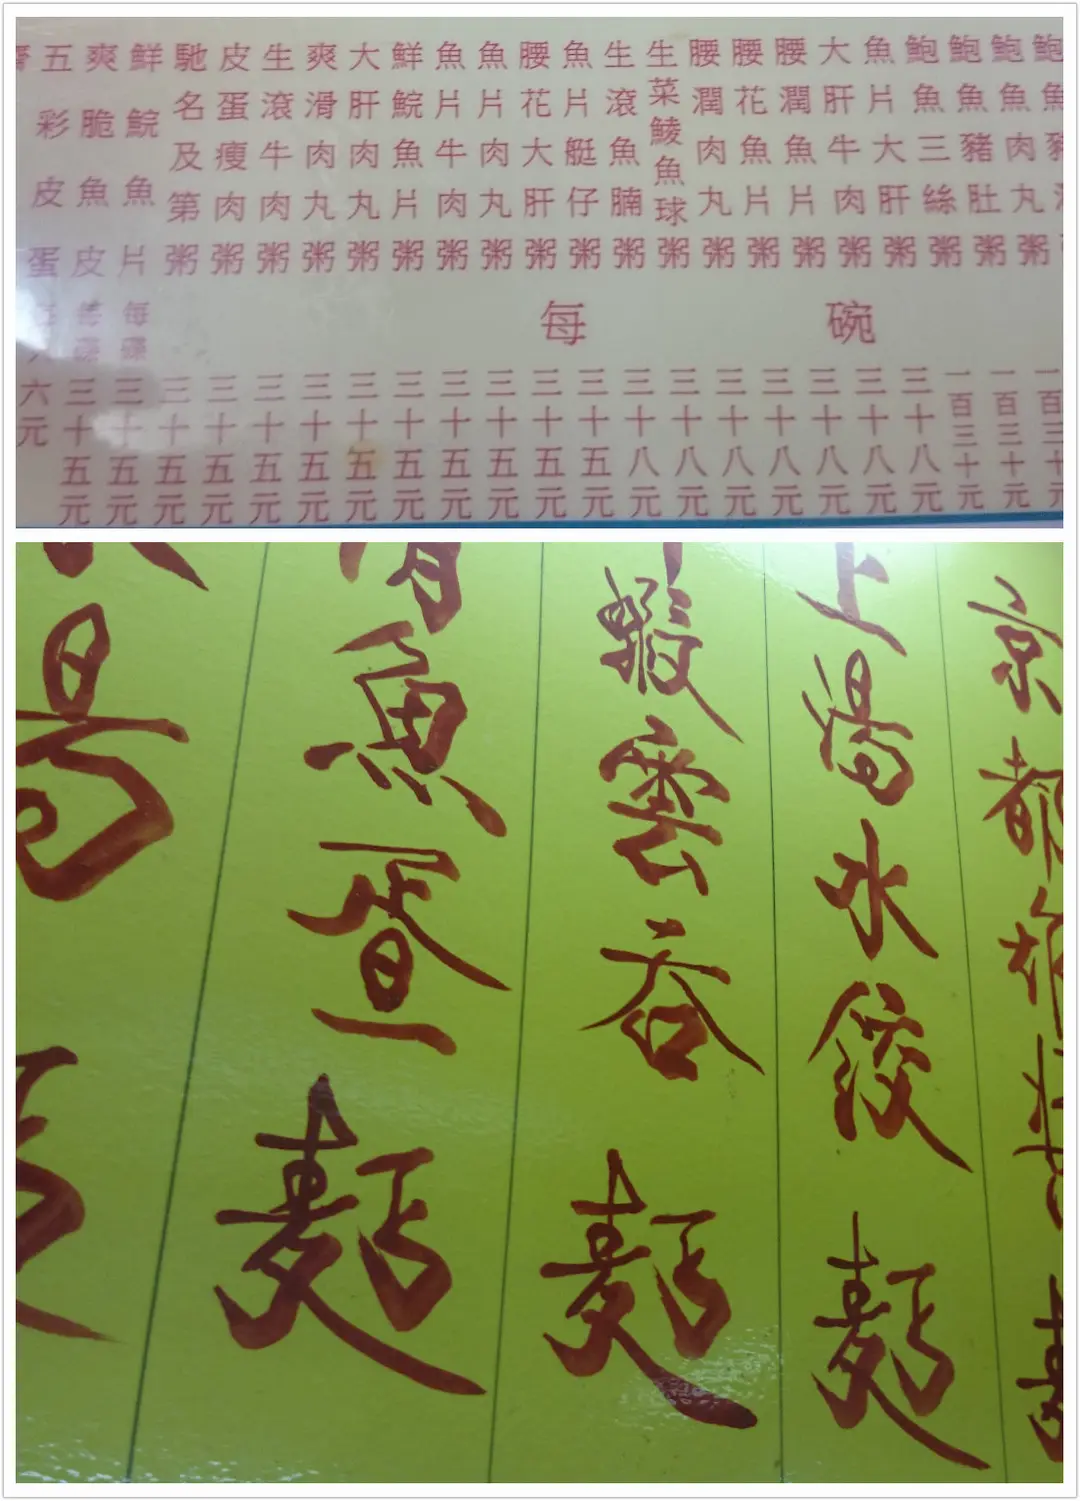 鮑魚豬
鮑魚肉丸粥
鮑魚豬肚粥
鮑魚三絲粥
魚片大肝粥
大肝牛肉粥
腰潤魚片粥
腰花魚片粥
腰潤肉丸粥
生菜鯪魚球粥
生滾魚腩粥
魚片艇仔粥
腰花大肝粥
魚片肉丸粥
魚片牛肉粥
鮮鯇魚片粥
大肝肉丸粥
爽滑肉丸粥
生滾牛肉粥
皮蛋瘦肉粥
馳名及第粥
鮮鯇魚片每碟
爽脆魚皮每碟
五彩皮蛋
每碗
一百三十元
一百三十元
一百三十元
三十八元
三十八元
三十八元
三十八元
三十八元
三十八元
三十八元
三十五元
三十五元
三十五元
三十五元
三十五元
三十五元
三十五元
三十五元
三十五元
三十五元
三十五元
三十五元
六元
京都
上湯水餃麵
蝦雲吞麵
魚蛋麵